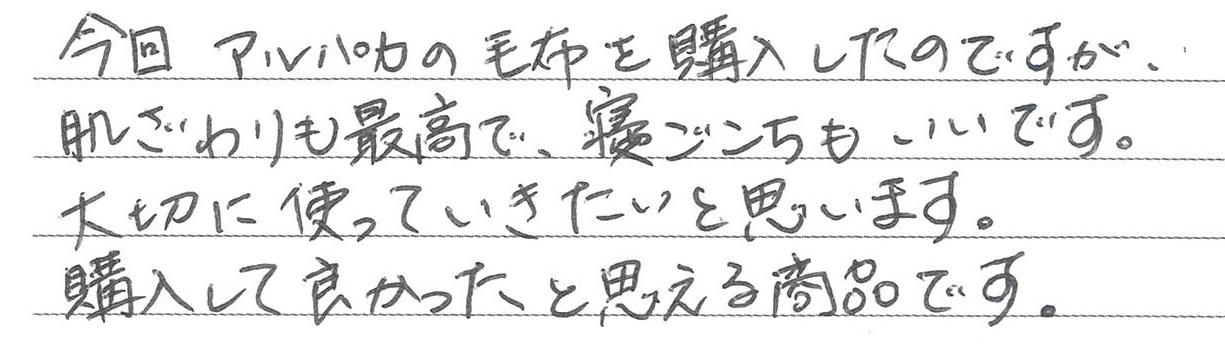 今回 アルパカの毛布を購入したのですが、
肌ざわりも最高で、寝ごこちもいいです。
大切に使っていきたいと思います。
購入して良かったと思える商品です。